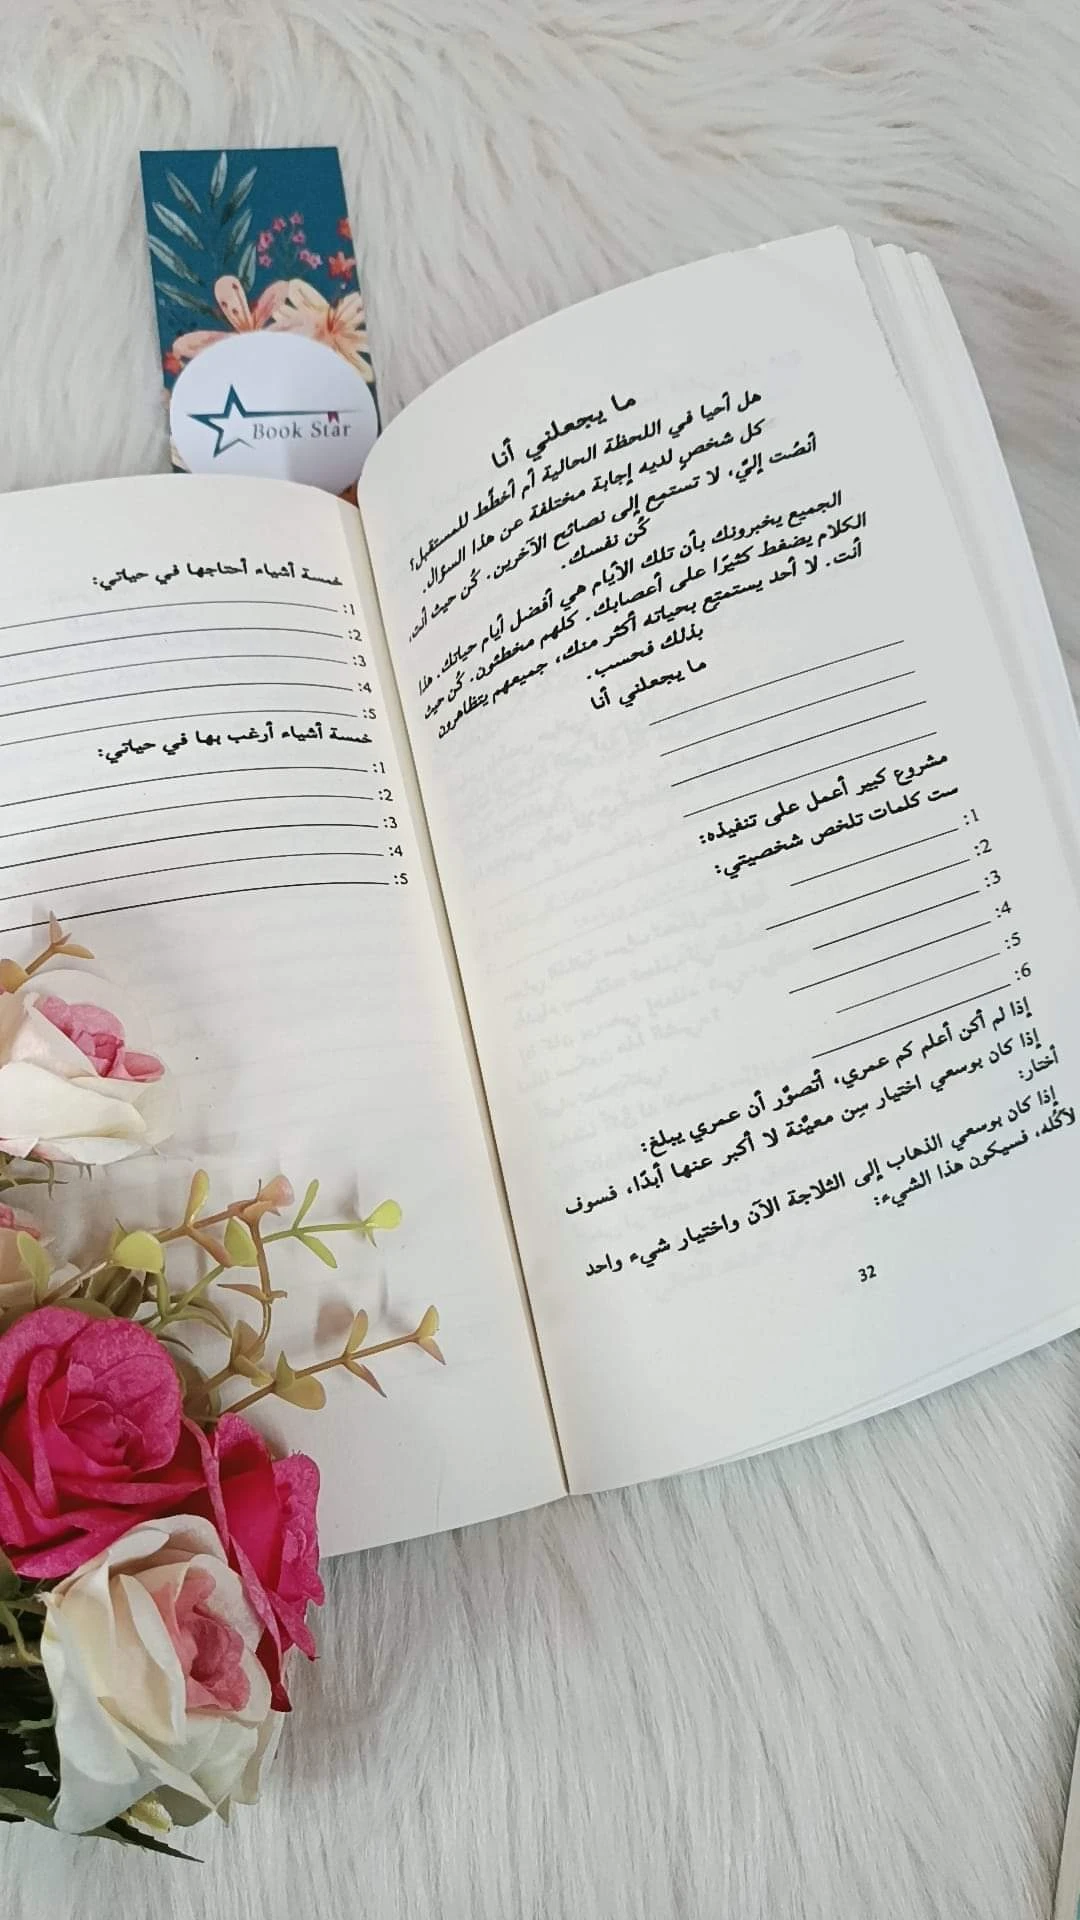 Book Star
ما يجعلني أنا
هل أحيا في اللحظة الحالية أم أخطّط للمستقبل؟
كل شخصٍ لديه إجابة مختلفة عن هذا السؤال.
أنصُت إليّ، لا تستمع إلى نصائح الآخرين. كُن حيث أنت،
كُن نفسك.
الجميع يخبرونك بأن تلك الأيام هي أفضل أيام حياتك. هذا
الكلام يضغط كثيرًا على أعصابك. كلهم مخطئون. كُن حيث
أنت. لا أحد يستمتع بحياته أكثر منك، جميعهم يتظاهرون
بذلك فحسب.
ما يجعلني أنا
مشروع كبير أعمل على تنفيذه:
ست كلمات تلخص شخصيتي:
1:
2:
3:
4:
5:
6:
إذا لم أكن أعلم كم عمري، أتصوّر أن عمري يبلغ:
إذا كان بوسعي اختيار سِن معيّنة لا أكبر عنها أبدًا، فسوف
أختار:
إذا كان بوسعي الذهاب إلى الثلاجة الآن واختيار شيء واحد
لآكُله، فسيكون هذا الشيء:
32
خمسة أشياء أحتاجها في حياتي:
1:
2:
3:
4:
5:
خمسة أشياء أرغب بها في حياتي:
1:
2:
3:
4:
5: